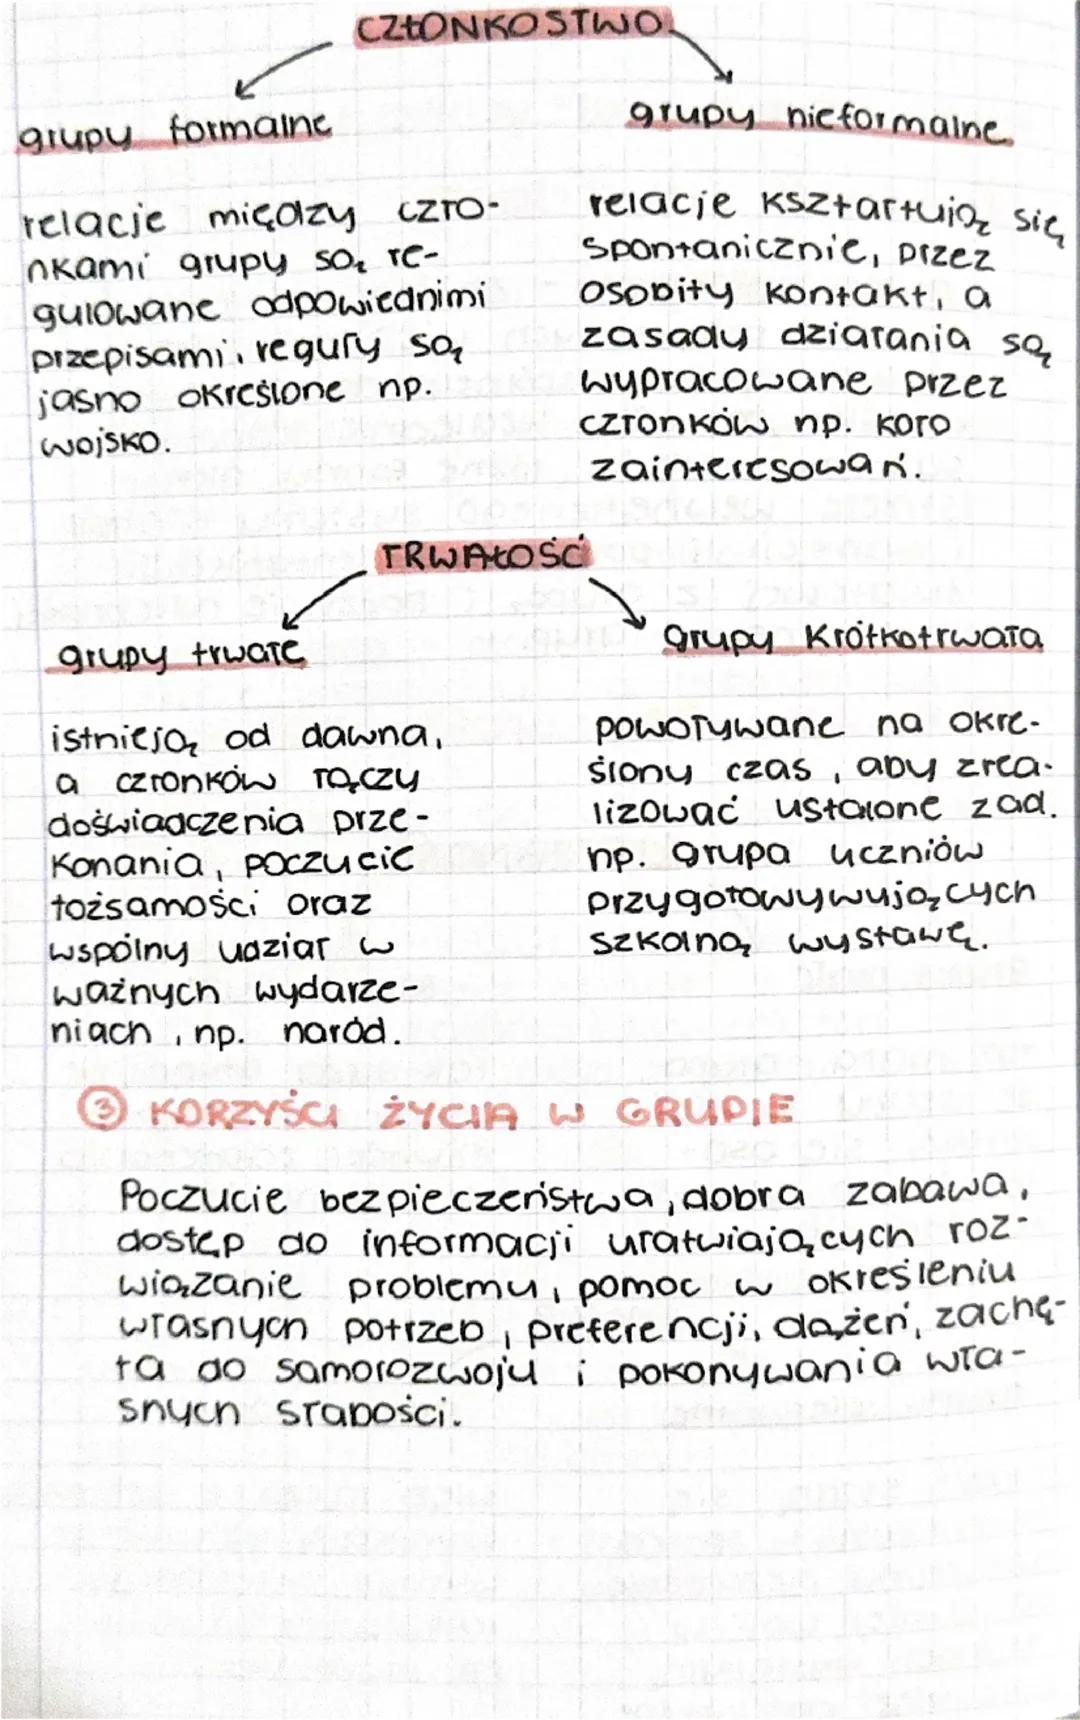 CZŁONKOSTWO
grupy formalne
grupy nieformalne
relacje między czło-
nkami grupy są re-
gulowane odpowiednimi
przepisami, reguły są
jasno określone np.
wojsko.
relacje kształtują się
spontanicznie, przez
osobity kontakt, a
zasady działania są
wypracowane przez
członków np. koło
zainteresowań.
TRWAŁOŚĆ
grupy trwałe
grupy krótkotrwała
istnieją od dawna,
a członków łączy
doświadczenia prze-
konania, poczucie
tożsamości oraz
wspólny udział w
ważnych wydarze-
niach, np. naród.
powoływane na okre-
ślony czas, aby zrea-
lizować ustalone zad.
np. grupa uczniów
przygotowywujących
szkolną wystawę.
③ KORZYŚCI ŻYCIA W GRUPIE
Poczucie bezpieczeństwa, dobra zabawa,
dostęp do informacji ułatwiających roz-
wiązanie problemu, pomoc w określeniu
własnych potrzeb, preferencji, dążeń, zachę-
ta do samorozwoju i pokonywania wła-
snych słabości.